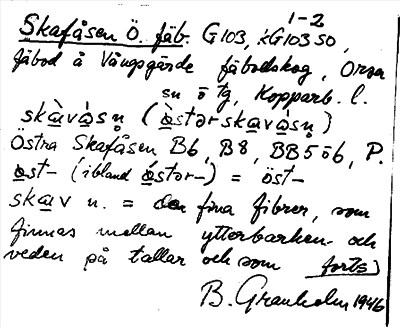 1-2
Skafåsen Ö. fäb. G103, kG103 SO,
fäbod å Vångsgärde fäbodskog, Orsa
sn ö tg, Kopparb. l.
skàvàsṇ (òstərskavàsṇ)
Östra Skafåsen B6, B8, BB5öb, P.
òst- (ibland óstər-) = öst-
skav n. = den fina fibrer, som
finnas mellan ytterbarken och
veden på tallar och som forts
B. Granholm 1946